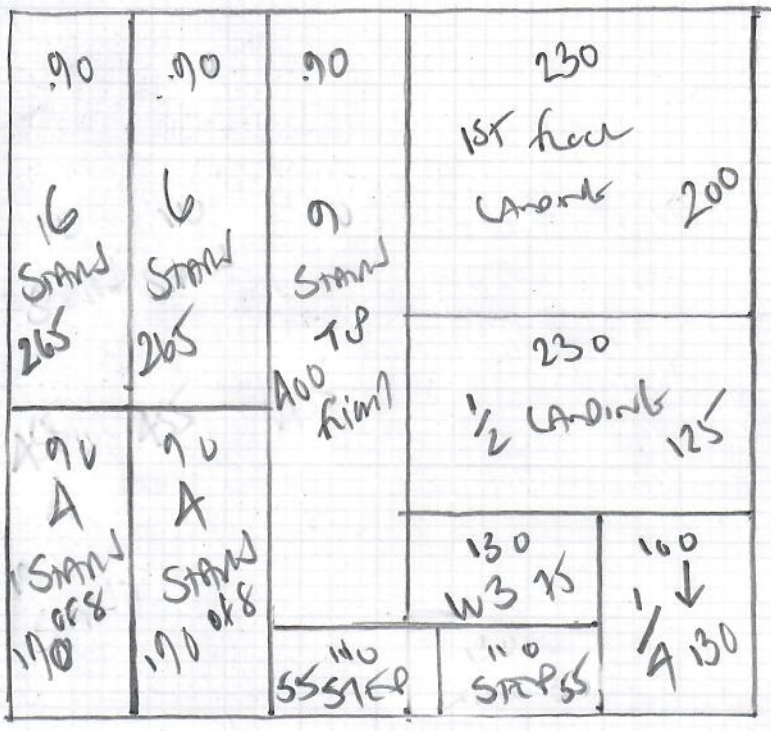 .90
16
STAIRS
265
.90
6
STAIRS
265
.90
9
STAIRS
T8
400
230
1ST floor
LANDING
200
230
1/2 LANDING
125
90
4
STAIRS
of 8
170
90
4
STAIRS
of 8
170
130
W3 75
100
↓
1/4 130
110
55 STEP
110
STEP 55